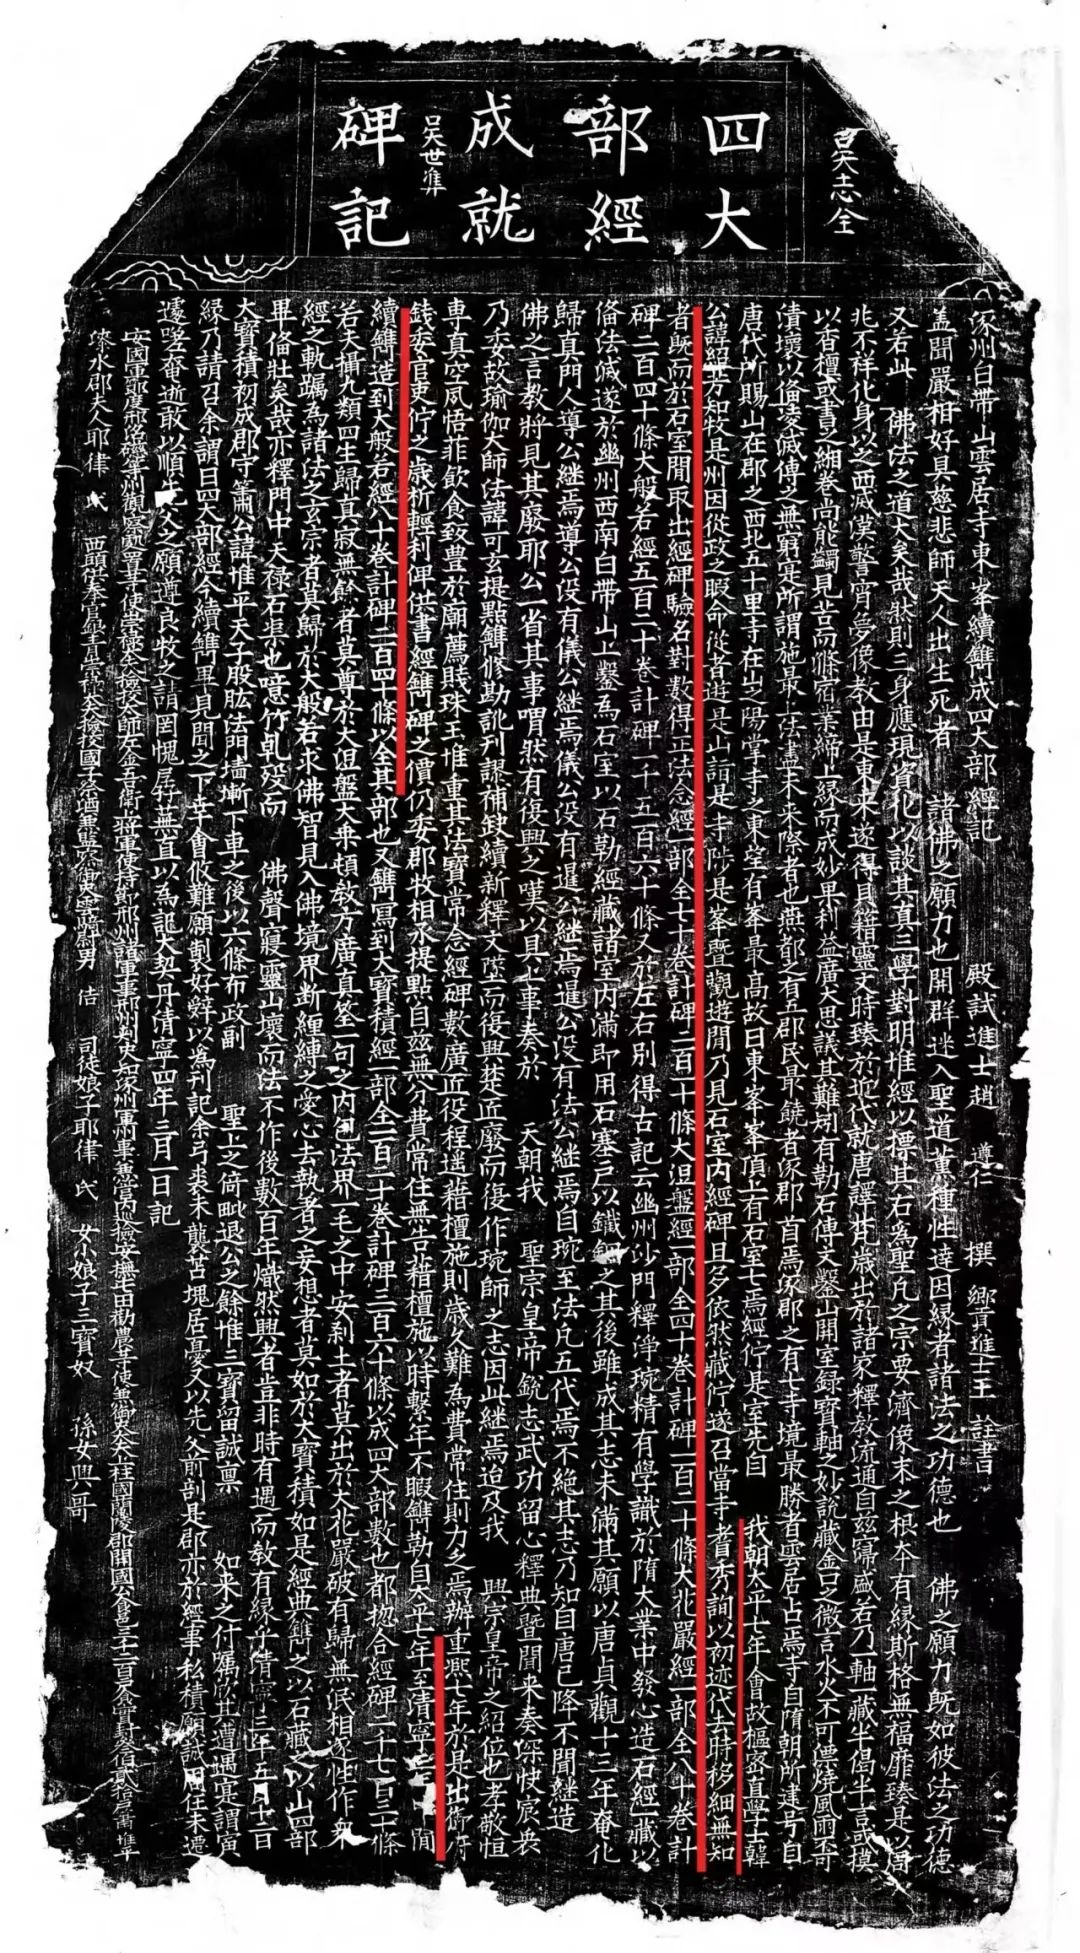 四大
部經
成就
碑記
吴志全
吴世准
涿州白帶山雲居寺東峯續鐫成四大部經記 殿試進士趙 遵仁 撰 鄉貢進士王 詮書
蓋聞嚴相好具慈悲師天人出生死者 諸佛之願力也開群迷入聖道薰種性達因緣者諸法之功德也 佛之願力旣如彼法之功德
又若此 佛法之道大矣哉然則三身應現資化以談其真三學對明推經以標其右爲聖凡之宗要濟像末之根本有緣斯格無福靡臻是以周
兆不祥化身以之西滅漢警宵夢像教由是東來遂得貝籍靈文時臻於近代就唐譯梵歲出於諸家釋教流通自兹寖盛若乃一軸一藏半偈半言或摸
以香檀或書之緗卷尚能蠲見苦而修宿業締上緣而成妙果利益廣大思議其難矧有勒石傳文鑿山開室録寶軸之妙說藏金口之微言水火不可漂燒風雨不可
漬壞以備凌滅傳之無窮寔所謂施最上法盡未來際者也燕都之有五郡民最饒者涿郡首焉涿郡之有七寺境最勝者雲居占焉寺自隋朝所建号自
唐代所賜山在郡之西北五十里寺在山之陽掌寺之東望有峯最高故曰東峯峯頂上有石室七焉經佇是室先自 我朝太平七年會故樞密直學士韓
公諱紹芳知牧是州因從政之暇命從者遊是山詣是寺陟是峯暨觀遊間乃見石室内經碑且多依然藏佇遂召當寺耆秀詢以初迹代去時移細無知
者旣而於石室間取出經碑驗名對數得正法念經一部全七十卷計碑二百一十條大涅盤經一部全四十卷計碑一百二十條大花嚴經一部全八十卷計
碑二百四十條大般若經五百二十卷計碑一千五百六十條又於左右別得古記云幽州沙門釋淨琬精有學識於隋大業中發心造石經一藏以
俻法滅遂於幽州西南白帶山上鑿爲石室以石勒經藏諸室内滿即用石塞戶以鐵錮之其後雖成其志未滿其願以唐貞觀十三年奄化
歸真門人導公繼焉導公没有儀公繼焉儀公没有暹公繼焉暹公没有法公繼焉自琬至法凡五代焉不絶其志乃知自唐已降不聞繼造
佛之言教將見其廢耶公一省其事喟然有復興之嘆以具上事奏於 天朝我 聖宗皇帝銳志武功留心釋典暨聞來奏深快宸衷
乃委故瑜伽大師法諱可玄提點鐫修勘訛刊謬補缺續新釋文墜而復興楚匠廢而復作琬師之志因此繼焉迨及我 興宗皇帝之紹位也孝敬恒
專真空夙悟菲飲食致豊於廟薦賤珠玉惟重其法寶常念經碑數廣匠役程遥藉檀施則歲久難爲費常住則力乏焉辦重熙七年於是出御府
錢委官吏佇之歲析輕利俾供書經鐫碑之價仍委郡牧相承提點自兹無分費常住無告藉檀施以時繫年不暇鐫勒自太平七年至清寧三年間
續鐫造到大般若經八十卷計碑二百四十條以全其部也又鐫寫到大寶積經一部全一百二十卷計碑三百六十條以成四大部數也都揔合經碑二千七百三十條
若夫攝九類四生歸真寂無餘者莫尊於大涅盤大乘頓教方廣真筌一句之内包法界一毛之中安刹土者莫出於大花嚴破有歸無泯相忘性作衆
經之軌躅爲諸法之玄宗者莫歸於大般若求佛智見入佛境界斷纏縛之愛心去執着之妄想者莫如於大寶積如是經典鐫之以石藏之以山四部
畢備壯矣哉亦釋門中天祿石渠也噫竹乾歿而 佛聲寢靈山壞而法不作後數百年熾然興者豈非時有遇而教有緣乎清寧三年五月十一日
大寶積初成郡守蕭公諱惟平天子股肱法門墻塹下車之後以六條布政副 聖上之倚毗退公之餘惟三寶留誠禀 如來之付囑
緣乃請召余謂曰四大部經今續鐫畢見聞之下幸會攸難願創好辭以爲刊記余
遽墜奄逝敢以順先父之願遵良牧之請罔愧孱蕪直以爲記大契丹清寧四年三月一日記
漆水郡夫人耶律 氏
司徒娘子耶律 氏 女小娘子三寶奴 孫女興哥